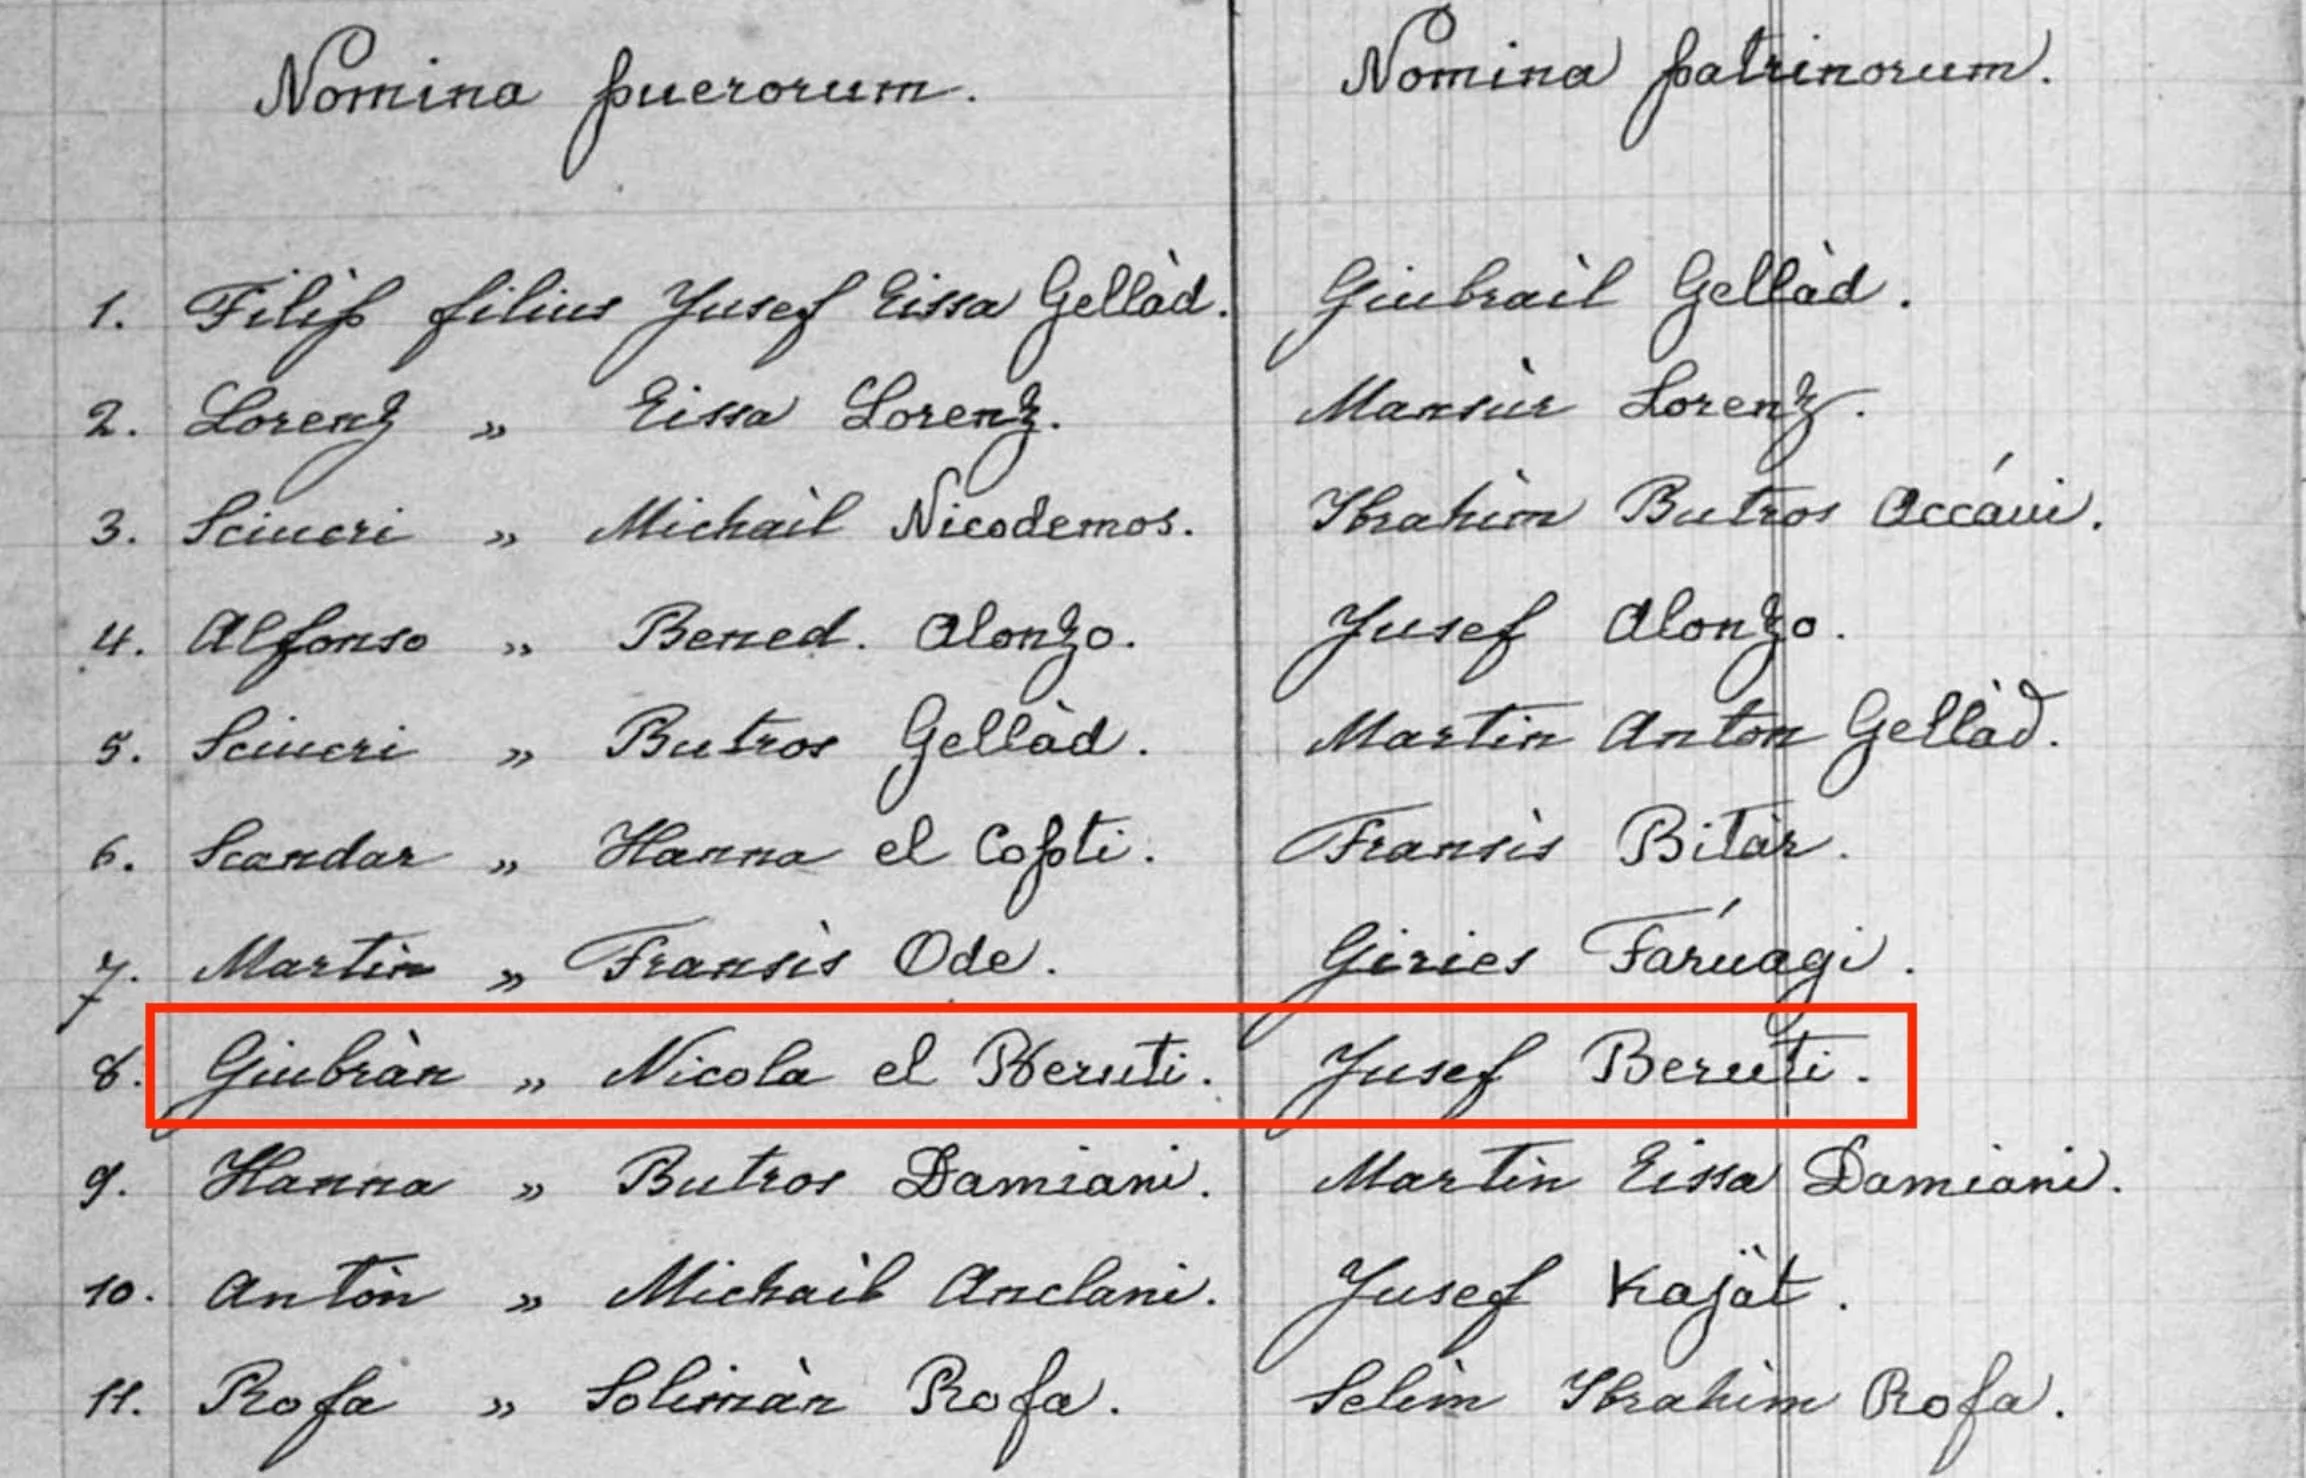 Nomina puerorum. Nomina patrinorum.
1. Filip filius Jusef Eissa Gellàd. Giubrail Gellàd.
2. Lorenz " Eissa Lorenz. Mansùr Lorenz.
3. Sciucri " Michaìl Nicodemos. Ibrahìm Butros Accáui.
4. Alfonso " Bened. Alonzo. Jusef Alonzo.
5. Sciucri " Butros Gellàd. Martin Anton Gellàd.
6. Scandar " Hanna el Copti. Fransìs Bitàr.
7. Martin " Fransìs Ode. Giries Fáruagi.
8. Giubràn " Nicola el Beruti. Jusef Beruti.
9. Hanna " Butros Damiani. Martin Eissa Damiani.
10. Antòn " Michaìl Anclani. Jusef Kajàt.
11. Rofa " Solimàn Rofa. Selìm Ibrahìm Rofa.